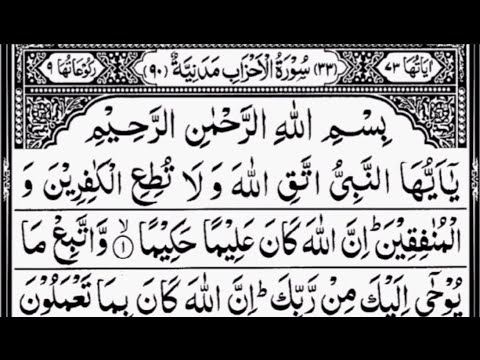 اٰیَاتُهَا ۷۳ (۳۳) سُوْرَةُ الْاَحْزَابِ مَدَنِيَّةٌ (۹۰) رُكُوْعَاتُهَا ۹
بِسْمِ اللّٰهِ الرَّحْمٰنِ الرَّحِيْمِ
يٰۤاَيُّهَا النَّبِىُّ اتَّقِ اللّٰهَ وَلَا تُطِعِ الْكٰفِرِيْنَ وَ
الْمُنٰفِقِيْنَ ؕ اِنَّ اللّٰهَ كَانَ عَلِيْمًا حَكِيْمًا ۙ﴿۱﴾ وَّاتَّبِعْ مَا
يُوْحٰۤى اِلَيْكَ مِنْ رَّبِّكَ ؕ اِنَّ اللّٰهَ كَانَ بِمَا تَعْمَلُوْنَ